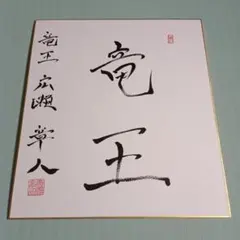 竜王
竜王 広瀬章人